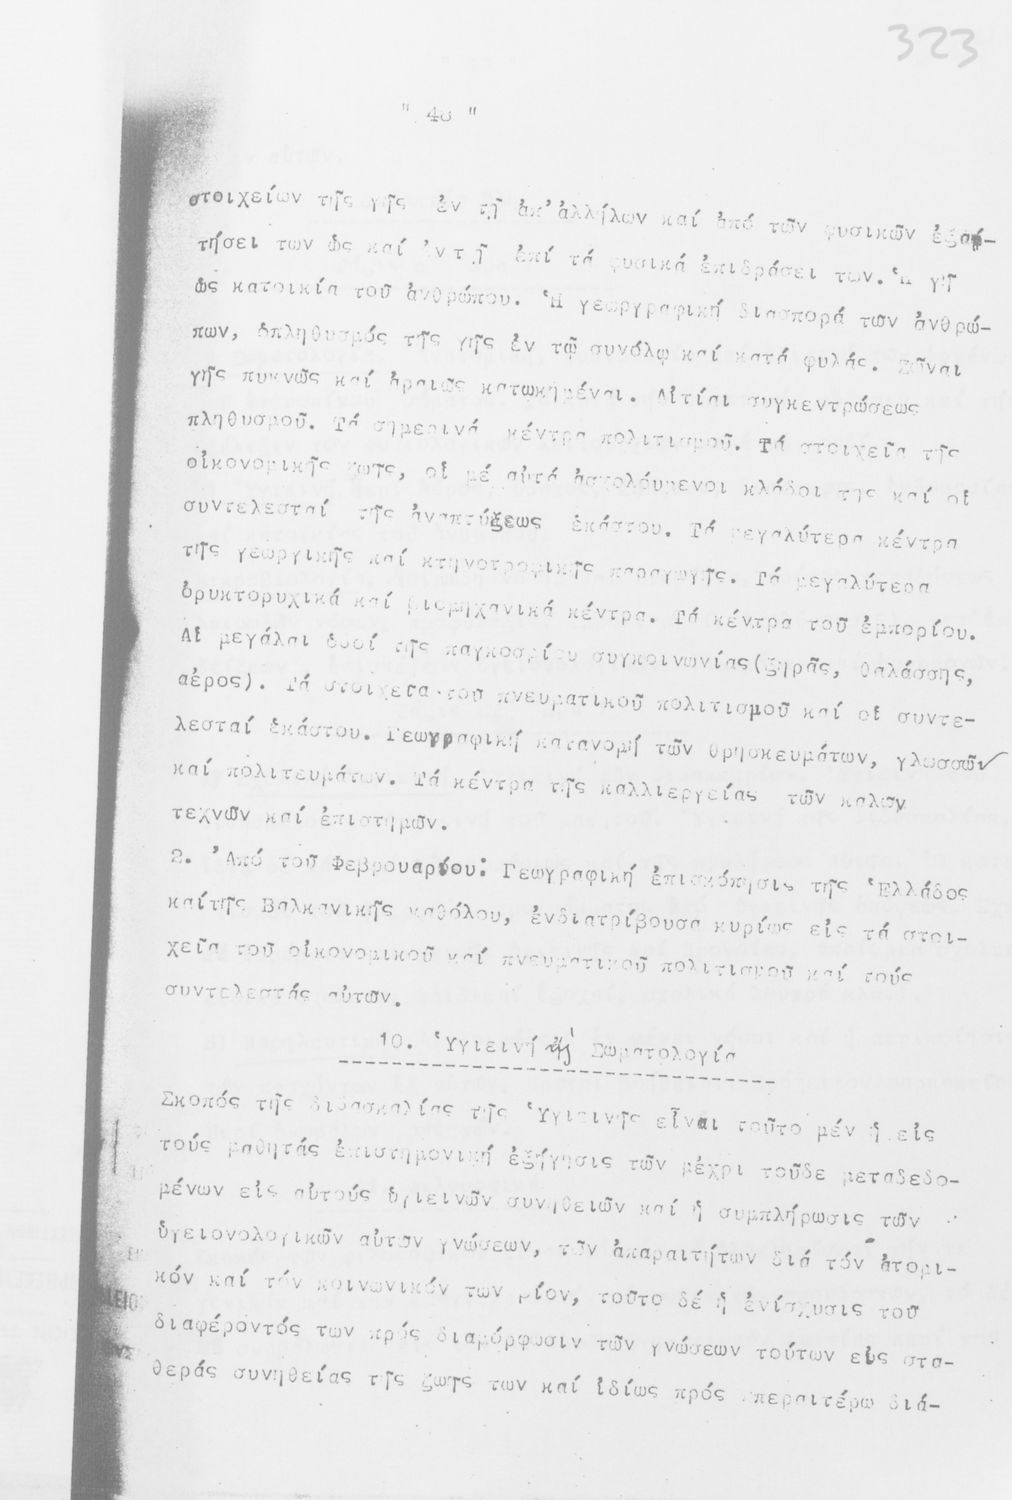 323
" 48 "
στοιχείων τῆς γῆς ἐν τῇ ἀπ' ἀλλήλων καί ἀπό τῶν φυσικῶν ἐξαρ-
τήσει των ὡς καί ἐν τῇ ἐπί τά φυσικά ἐπιδράσει των. Ἡ γῆ
ὡς κατοικία τοῦ ἀνθρώπου. Ἡ γεωργραφική διασπορά τῶν ἀνθρώ-
πων, ὁπληθυσμός τῆς γῆς ἐν τῷ συνόλῳ καί κατά φυλάς. Ζῶναι
γῆς πυκνῶς καί ἀραιῶς κατωκημέναι. Αἰτίαι συγκεντρώσεως
πληθυσμοῦ. Τά σημερινά κέντρα πολιτισμοῦ. Τά στοιχεῖα τῆς
οἰκονομικῆς ζωῆς, οἱ μέ αὐτά ἀσχολούμενοι κλάδοι της καί οἱ
συντελεσταί τῆς ἀναπτύξεως ἑκάστου. Τά μεγαλύτερα κέντρα
τῆς γεωργικῆς καί κτηνοτροφικῆς παραγωγῆς. Τά μεγαλύτερα
ὀρυκτορυχικά καί βιομηχανικά κέντρα. Τά κέντρα τοῦ ἐμπορίου.
Αἱ μεγάλαι ὁδοί τῆς παγκοσμίου συγκοινωνίας(ξηρᾶς, θαλάσσης,
αέρος). Τά στοιχεῖα τοῦ πνευματικοῦ πολιτισμοῦ καί οἱ συντε-
λεσταί ἑκάστου. Γεωγραφική κατανομή τῶν θρησκευμάτων, γλωσσῶν
καί πολιτευμάτων. Τά κέντρα τῆς καλλιεργείας τῶν καλῶν
τεχνῶν καί ἐπιστημῶν.
2. Ἀπό τοῦ Φεβρουαρίου: Γεωγραφική ἐπισκόπησις τῆς Ἑλλάδος
καίτῆς Βαλκανικῆς καθόλου, ἐνδιατρίβουσα κυρίως εἰς τά στοι-
χεῖα τοῦ οἰκονομικοῦ καί πνευματικοῦ πολιτισμοῦ καί τούς
συντελεστάς αὐτῶν.
10. Ὑγιεινή ἤ Σωματολογία
Σκοπός τῆς διδασκαλίας τῆς Ὑγιεινῆς εἶναι τοῦτο μέν ἡ εἰς
τούς μαθητάς ἐπιστημονική ἐξήγησις τῶν μέχρι τοῦδε μεταδεδο-
μένων εἰς αὐτούς ὑγιεινῶν συνηθειῶν καί ἡ συμπλήρωσις τῶν
ὑγειονολογικῶν αὐτῶν γνώσεων, τῶν ἀπαραιτήτων διά τόν ἀτομι-
κόν καί τόν κοινωνικόν των βίον, τοῦτο δέ ἡ ἐνίσχυσις τοῦ
διαφέροντός των πρός διαμόρφωσιν τῶν γνώσεων τούτων εἰς στα-
θεράς συνηθείας τῆς ζωῆς των καί ἰδίως πρός περαιτέρω διά-